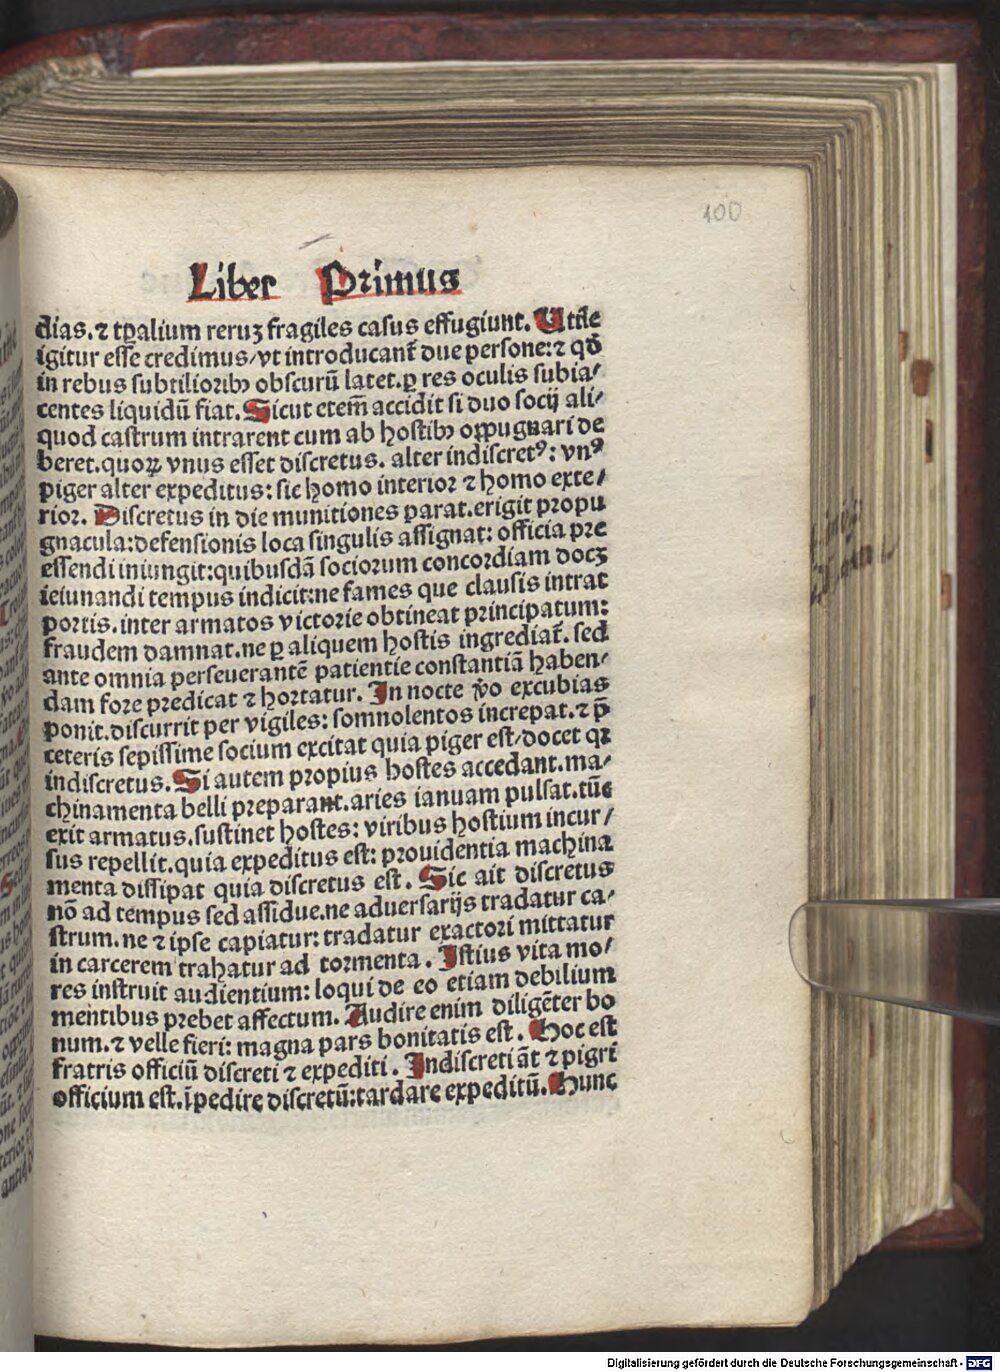 100
Liber Primus
dias.⁊ tꝑalium reruꝫ fragiles casus effugiunt. Utile
igitur esse credimus/vt introducant᷑ due persone:⁊ qđ
in rebus subtiliorib⁹ obscurū latet.ꝑ res oculis subia/
centes liquidū fiat. Sicut etem̄ accidit si duo socij ali/
quod castrum intrarent cum ab hostib⁹ oppugnari de
beret.quoꝝ vnus esset discretus. alter indiscret⁹: vn⁹
piger alter expeditus: sic homo interior ⁊ homo exte/
rior. Discretus in die munitiones parat.erigit propu
gnacula:defensionis loca singulis assignat: officia pre
essendi iniungit:quibusdā sociorum concordiam docꝫ
ieiunandi tempus indicit:ne fames que clausis intrat
portis.inter armatos victorie obtineat principatum:
fraudem damnat.ne ꝑ aliquem hostis ingrediat᷑. sed
ante omnia perseuerantē patientie constantiā haben/
dam fore predicat ⁊ hortatur. In nocte v̓o excubias
ponit.discurrit per vigiles: somnolentos increpat.⁊ p̄
ceteris sepissime socium excitat quia piger est/docet qꝛ
indiscretus. Si autem propius hostes accedant.ma/
chinamenta belli preparant.aries ianuam pulsat.tūc
exit armatus.sustinet hostes: viribus hostium incur/
sus repellit.quia expeditus est: prouidentia machina
menta dissipat quia discretus est. Sic ait discretus
nō ad tempus sed assidue.ne aduersarijs tradatur ca/
strum.ne ⁊ ipse capiatur: tradatur exactori mittatur
in carcerem trahatur ad tormenta. Istius vita mo/
res instruit audientium: loqui de eo etiam debilium
mentibus prebet affectum. Audire enim diligēter bo
num.⁊ velle fieri: magna pars bonitatis est. Hoc est
fratris officiū discreti ⁊ expediti. Indiscreti āt ⁊ pigri
officium est.īpedire discretū:tardare expeditū. Hunc
Digitalisierung gefördert durch die Deutsche Forschungsgemeinschaft - DFG